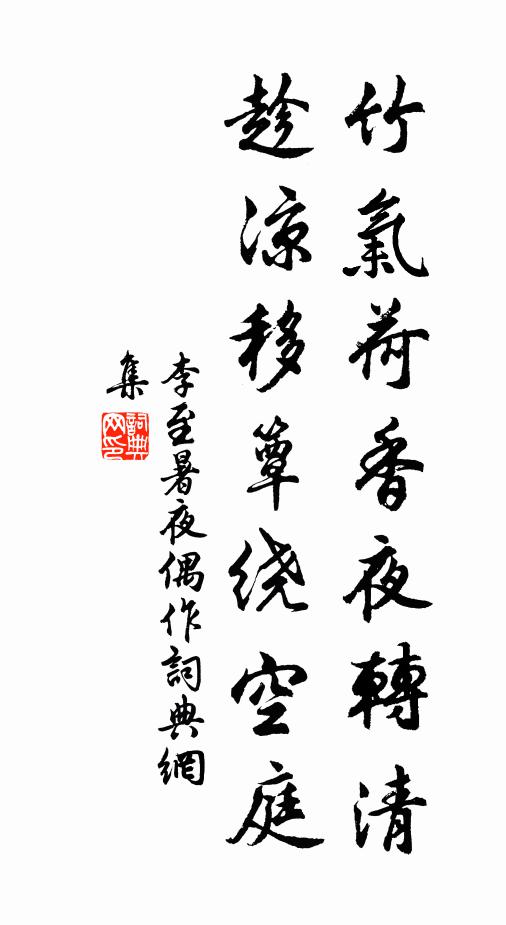 竹氣荷香夜轉清
趁涼移簟绕空庭
李至暑夜偶作詞典網
集
詞典网印